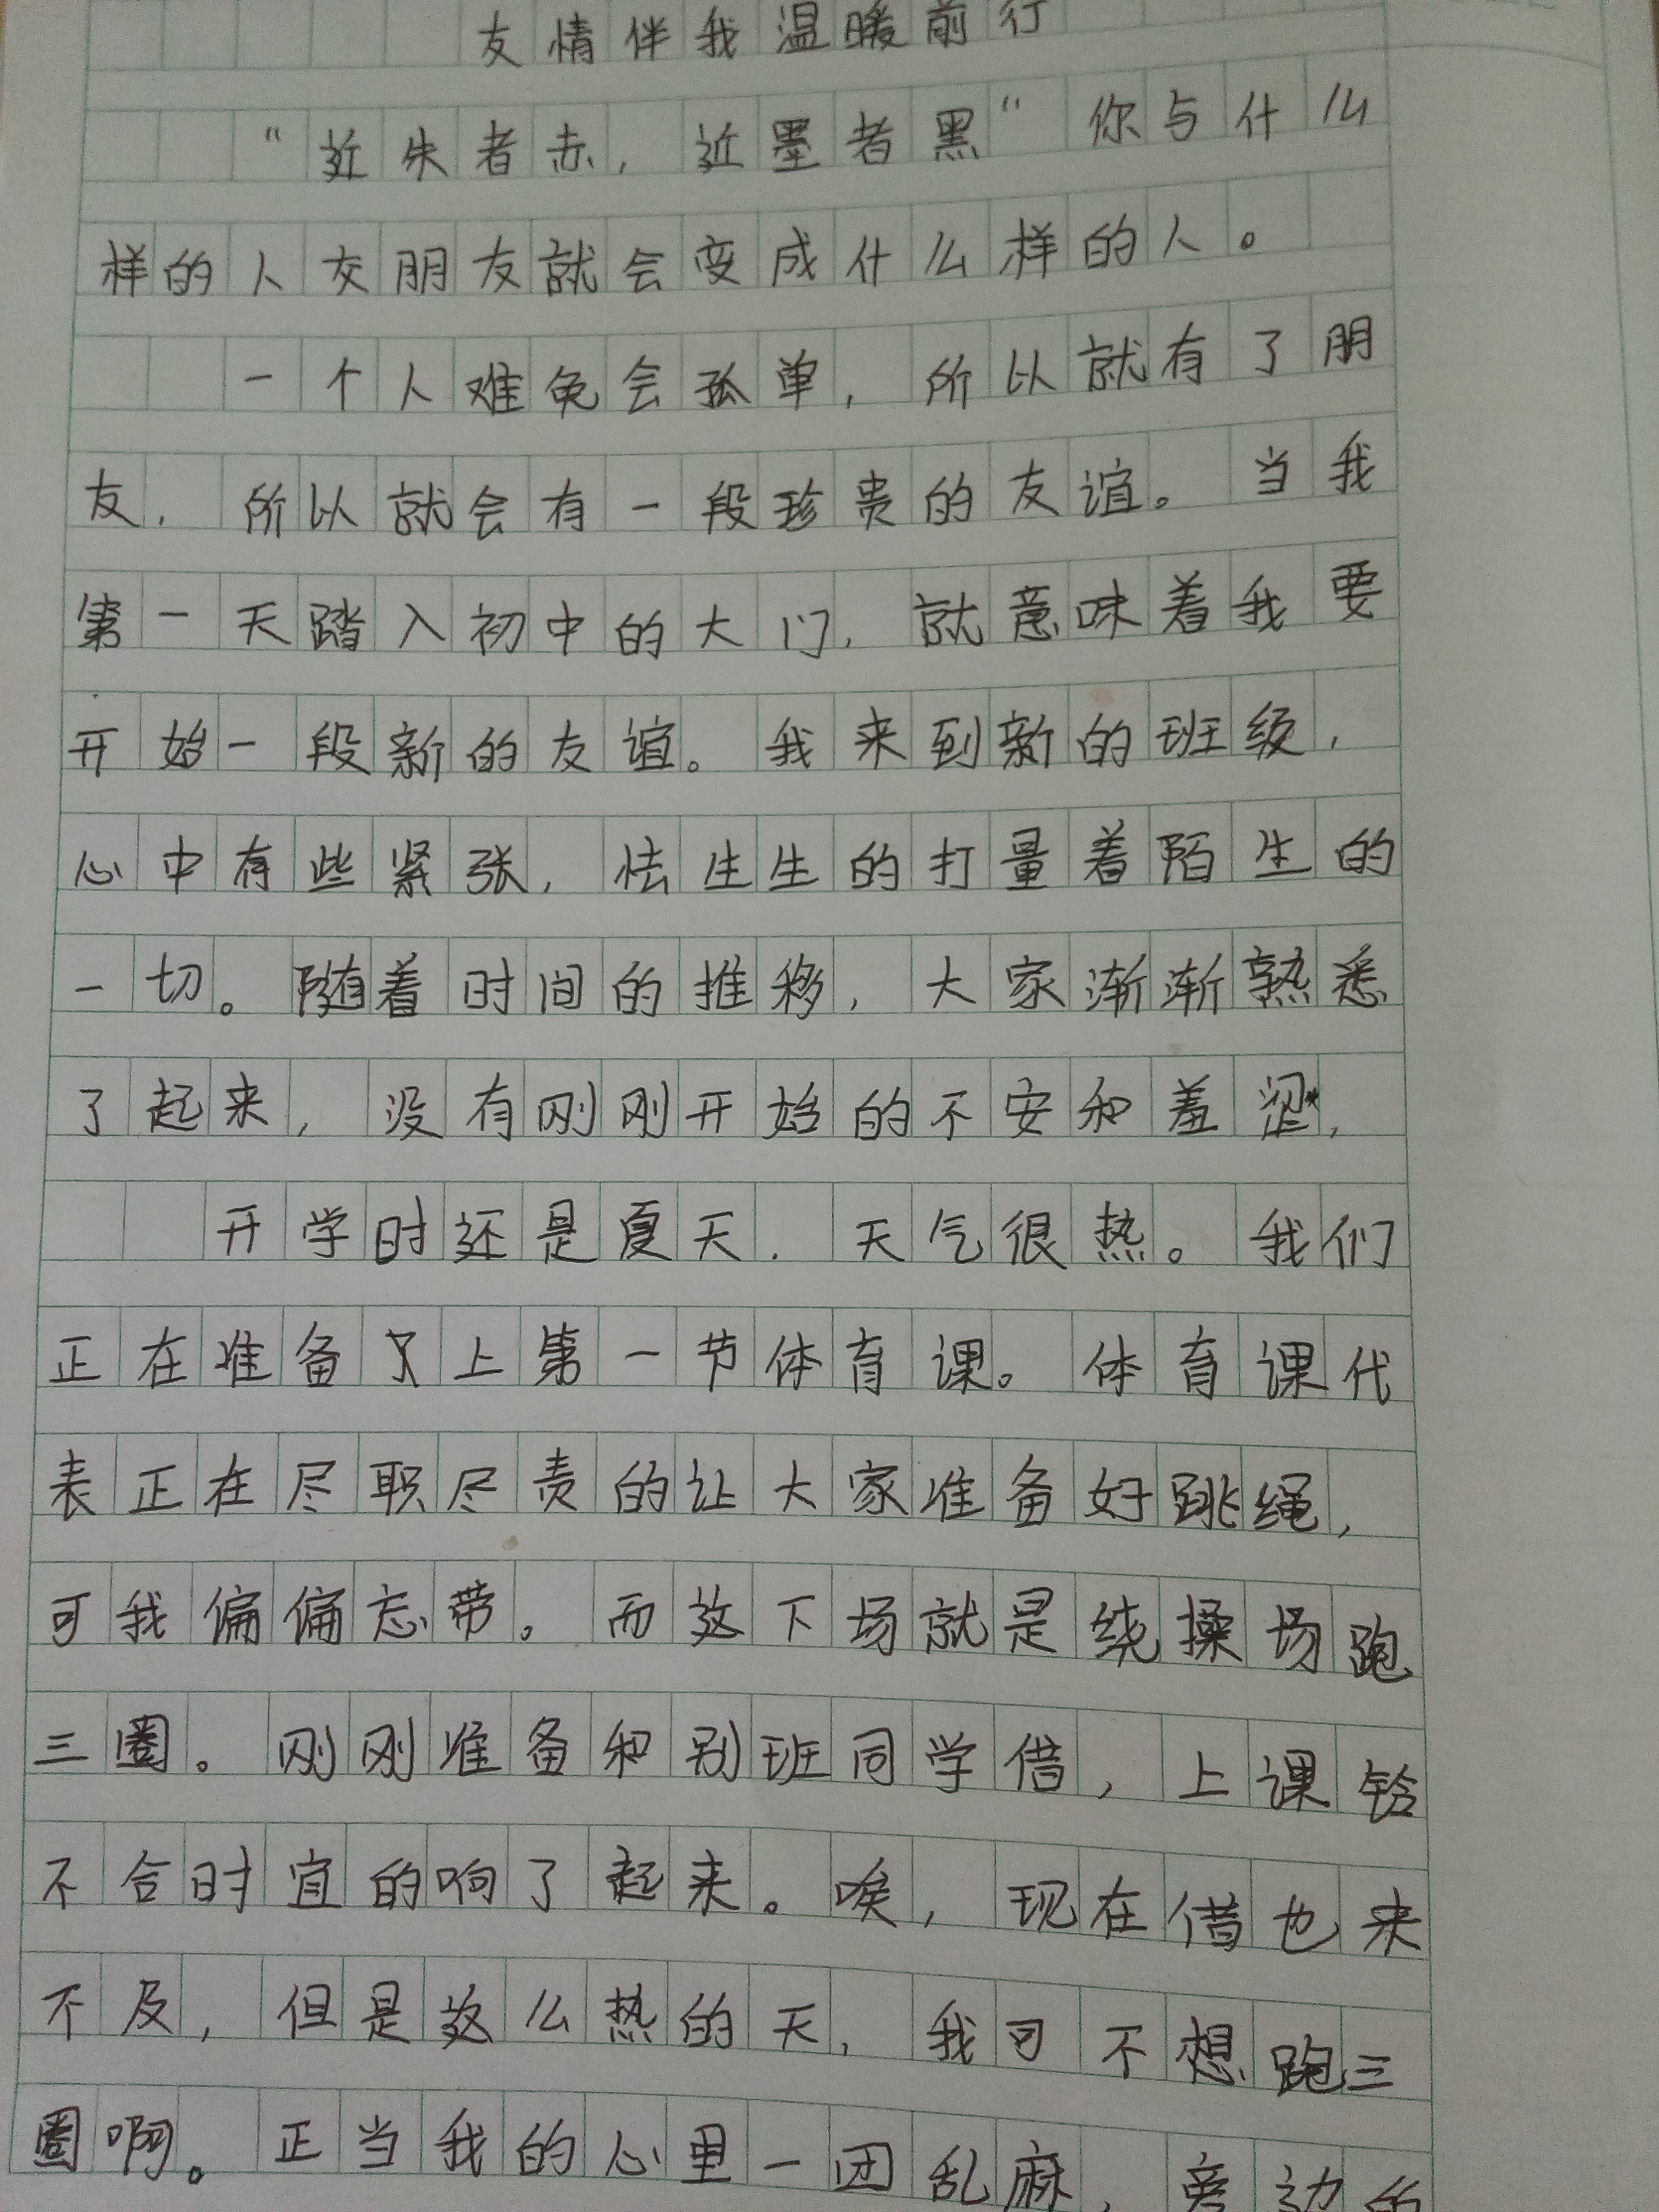 友情伴我温暖前行
“近朱者赤，近墨者黑“你与什么
样的人交朋友就会变成什么样的人。
一个人难免会孤单，所以就有了朋
友，所以就会有一段珍贵的友谊。当我
第一天踏入初中的大门，就意味着我要
开始一段新的友谊。我来到新的班级，
心中有些紧张，怯生生的打量着陌生的
一切。随着时间的推移，大家渐渐熟悉
了起来，没有刚刚开始的不安和羞涩，
开学时还是夏天．天气很热。我们
正在准备上第一节体育课。体育课代
表正在尽职尽责的让大家准备好跳绳，
可我偏偏忘带。而这下场就是绕操场跑
三圈。刚刚准备和别班同学借，上课铃
不合时宜的响了起来。唉，现在借也来
不及，但是这么热的天，我可不想跑三
圈啊。正当我的心里一团乱麻，旁边的